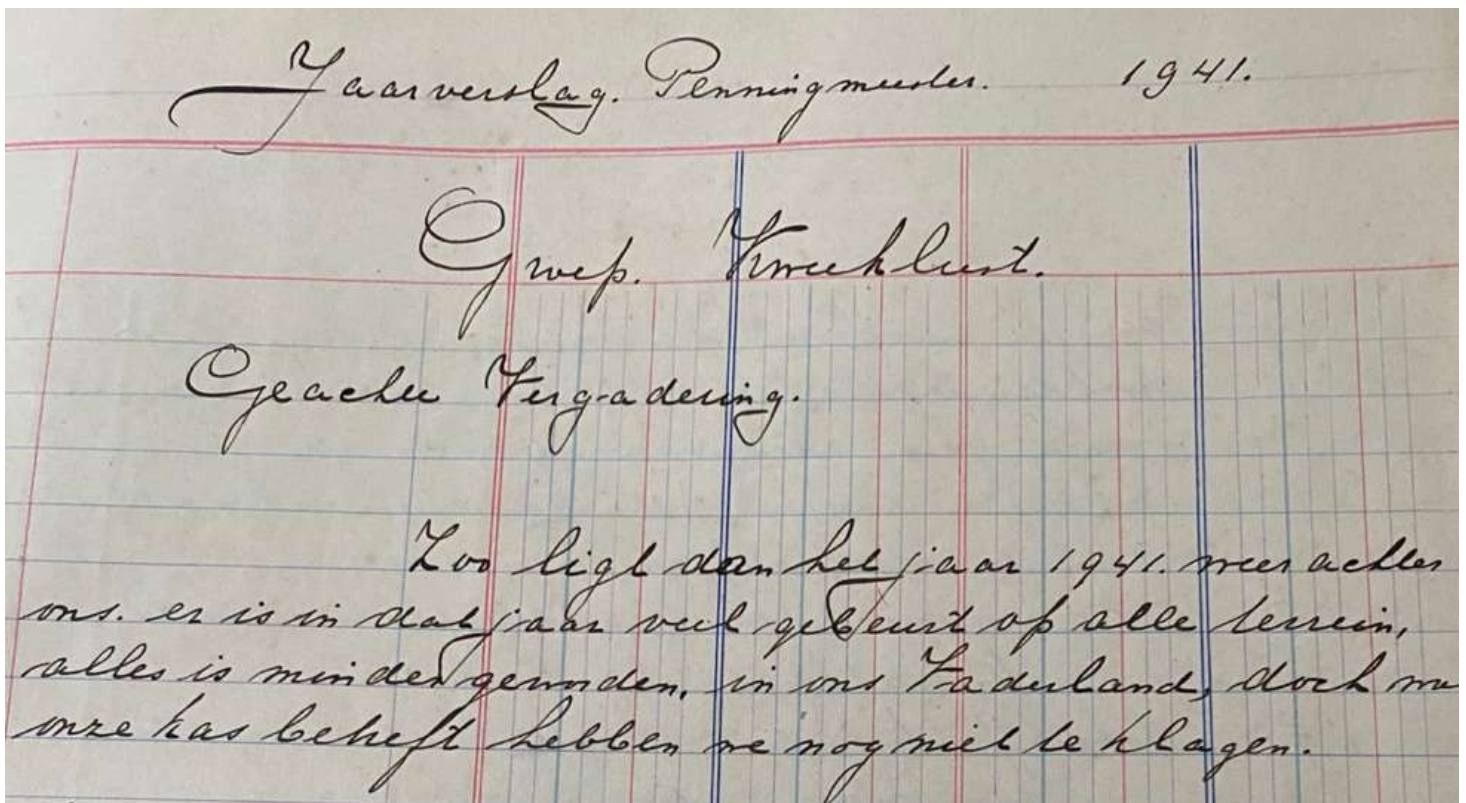 Jaarverslag. Penningmeester. 1941.
Groep. Kweeklust.
Geachte Vergadering.
Zoo ligt dan het jaar 1941. weer achter
ons. er is in dat jaar veel gebeurt op alle terrein,
alles is minder geworden, in ons Vaderland, doch wa
onze kas betreft hebben we nog niet te klagen.